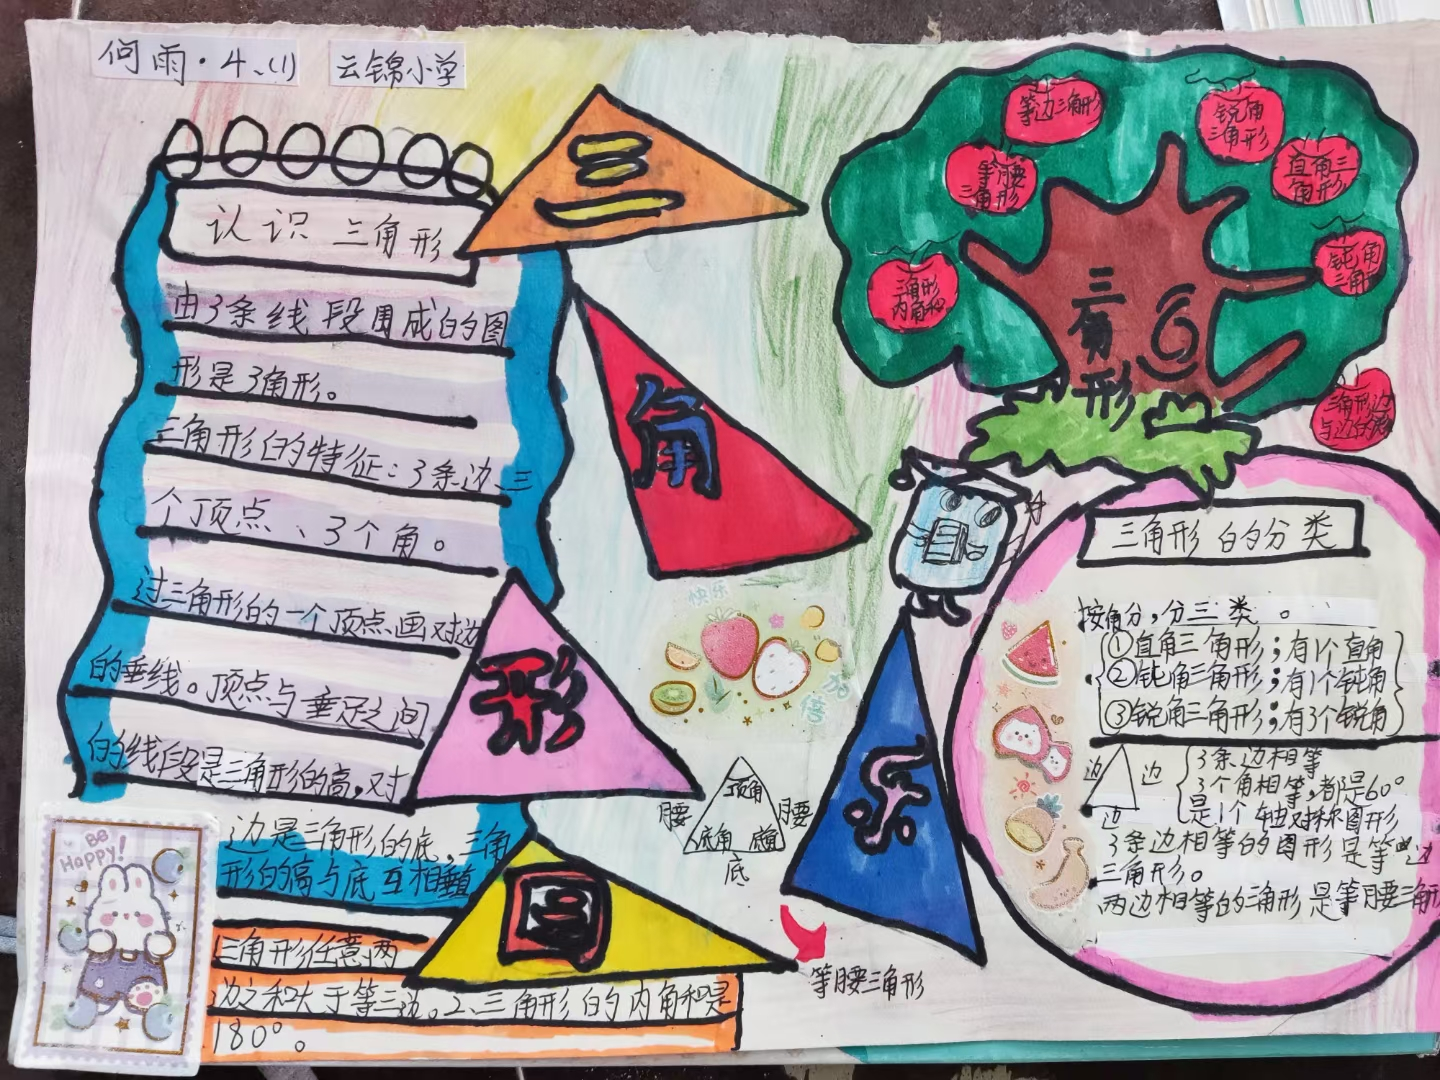 何雨·4、(1)
云锦小学
认识三角形
由3条线段围成的图
形是3角形。
三角形的特征:3条边、三
个顶点、3个角。
过三角形的一个顶点画对边
的垂线。顶点与垂足之间
的线段是三角形的高,对
边是三角形的底,三角
形的高与底互相垂直
三角形任意两
边之和大于等三边。2、三角形的内角和是
180°。
三
角
形
乐
园
快乐
加倍
Be
Happy!
顶角
腰
腰
底角
底角
底
等腰三角形
等边三角形
锐角
三角形
等腰
三角形
直角三
角形
钝角
三角形
三角形
内角和
三角形边
与边的
三
角
形
三角形的分类
按角分,分三类。
①直角三角形;有1个直角
②钝角三角形;有1个钝角
③锐角三角形;有3个锐角
边
边
边
3条边相等
3个角相等,都是60°
是1个轴对称图形
3条边相等的图形是等边
三角形。
两边相等的三角形是等腰三角形